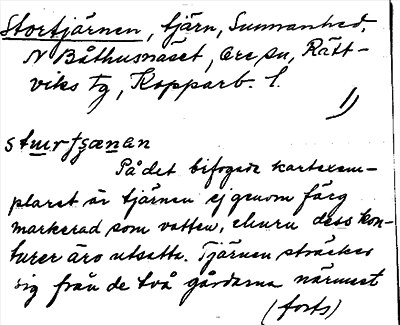 Stortjärnen, tjärn, Sunnanhed,
N Båthusnäset, Ore sn, Rätt-
viks tg, Kopparb. l.
1)
stu̱rtʃæṉan
På det bifogade kartexem-
plaret är tjärnen ej genom färg
markerad som vatten, ehuru dess kon-
turer äro utsatta. Tjärnen sträcker
sig från de två gårdarna närmast
(forts)